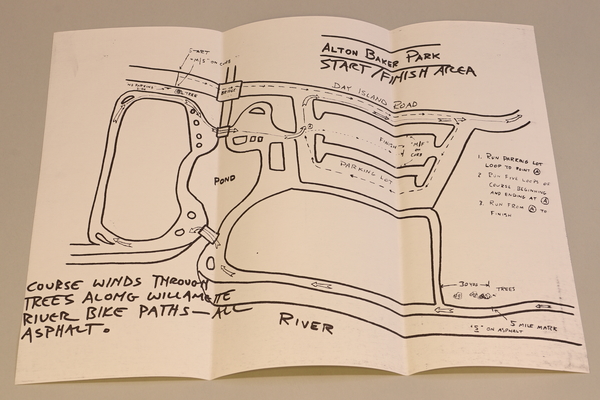 ALTON BAKER PARK
START/FINISH AREA
START
"M/S" ON CURB
NO PARKING
TREE
BRIDGE
DAY ISLAND ROAD
FINISH
"M/F"
ON
CURB
PARKING LOT
POND
1. RUN PARKING LOT
LOOP TO POINT A
2. RUN FIVE LOOPS OF
COURSE BEGINNING
AND ENDING AT A
3. RUN FROM A TO
FINISH
30 YDS
TREES
5 MILE MARK
"5" ON ASPHALT
COURSE WINDS THROUGH
TREES ALONG WILLAMETTE
RIVER BIKE PATHS — ALL
ASPHALT.
RIVER